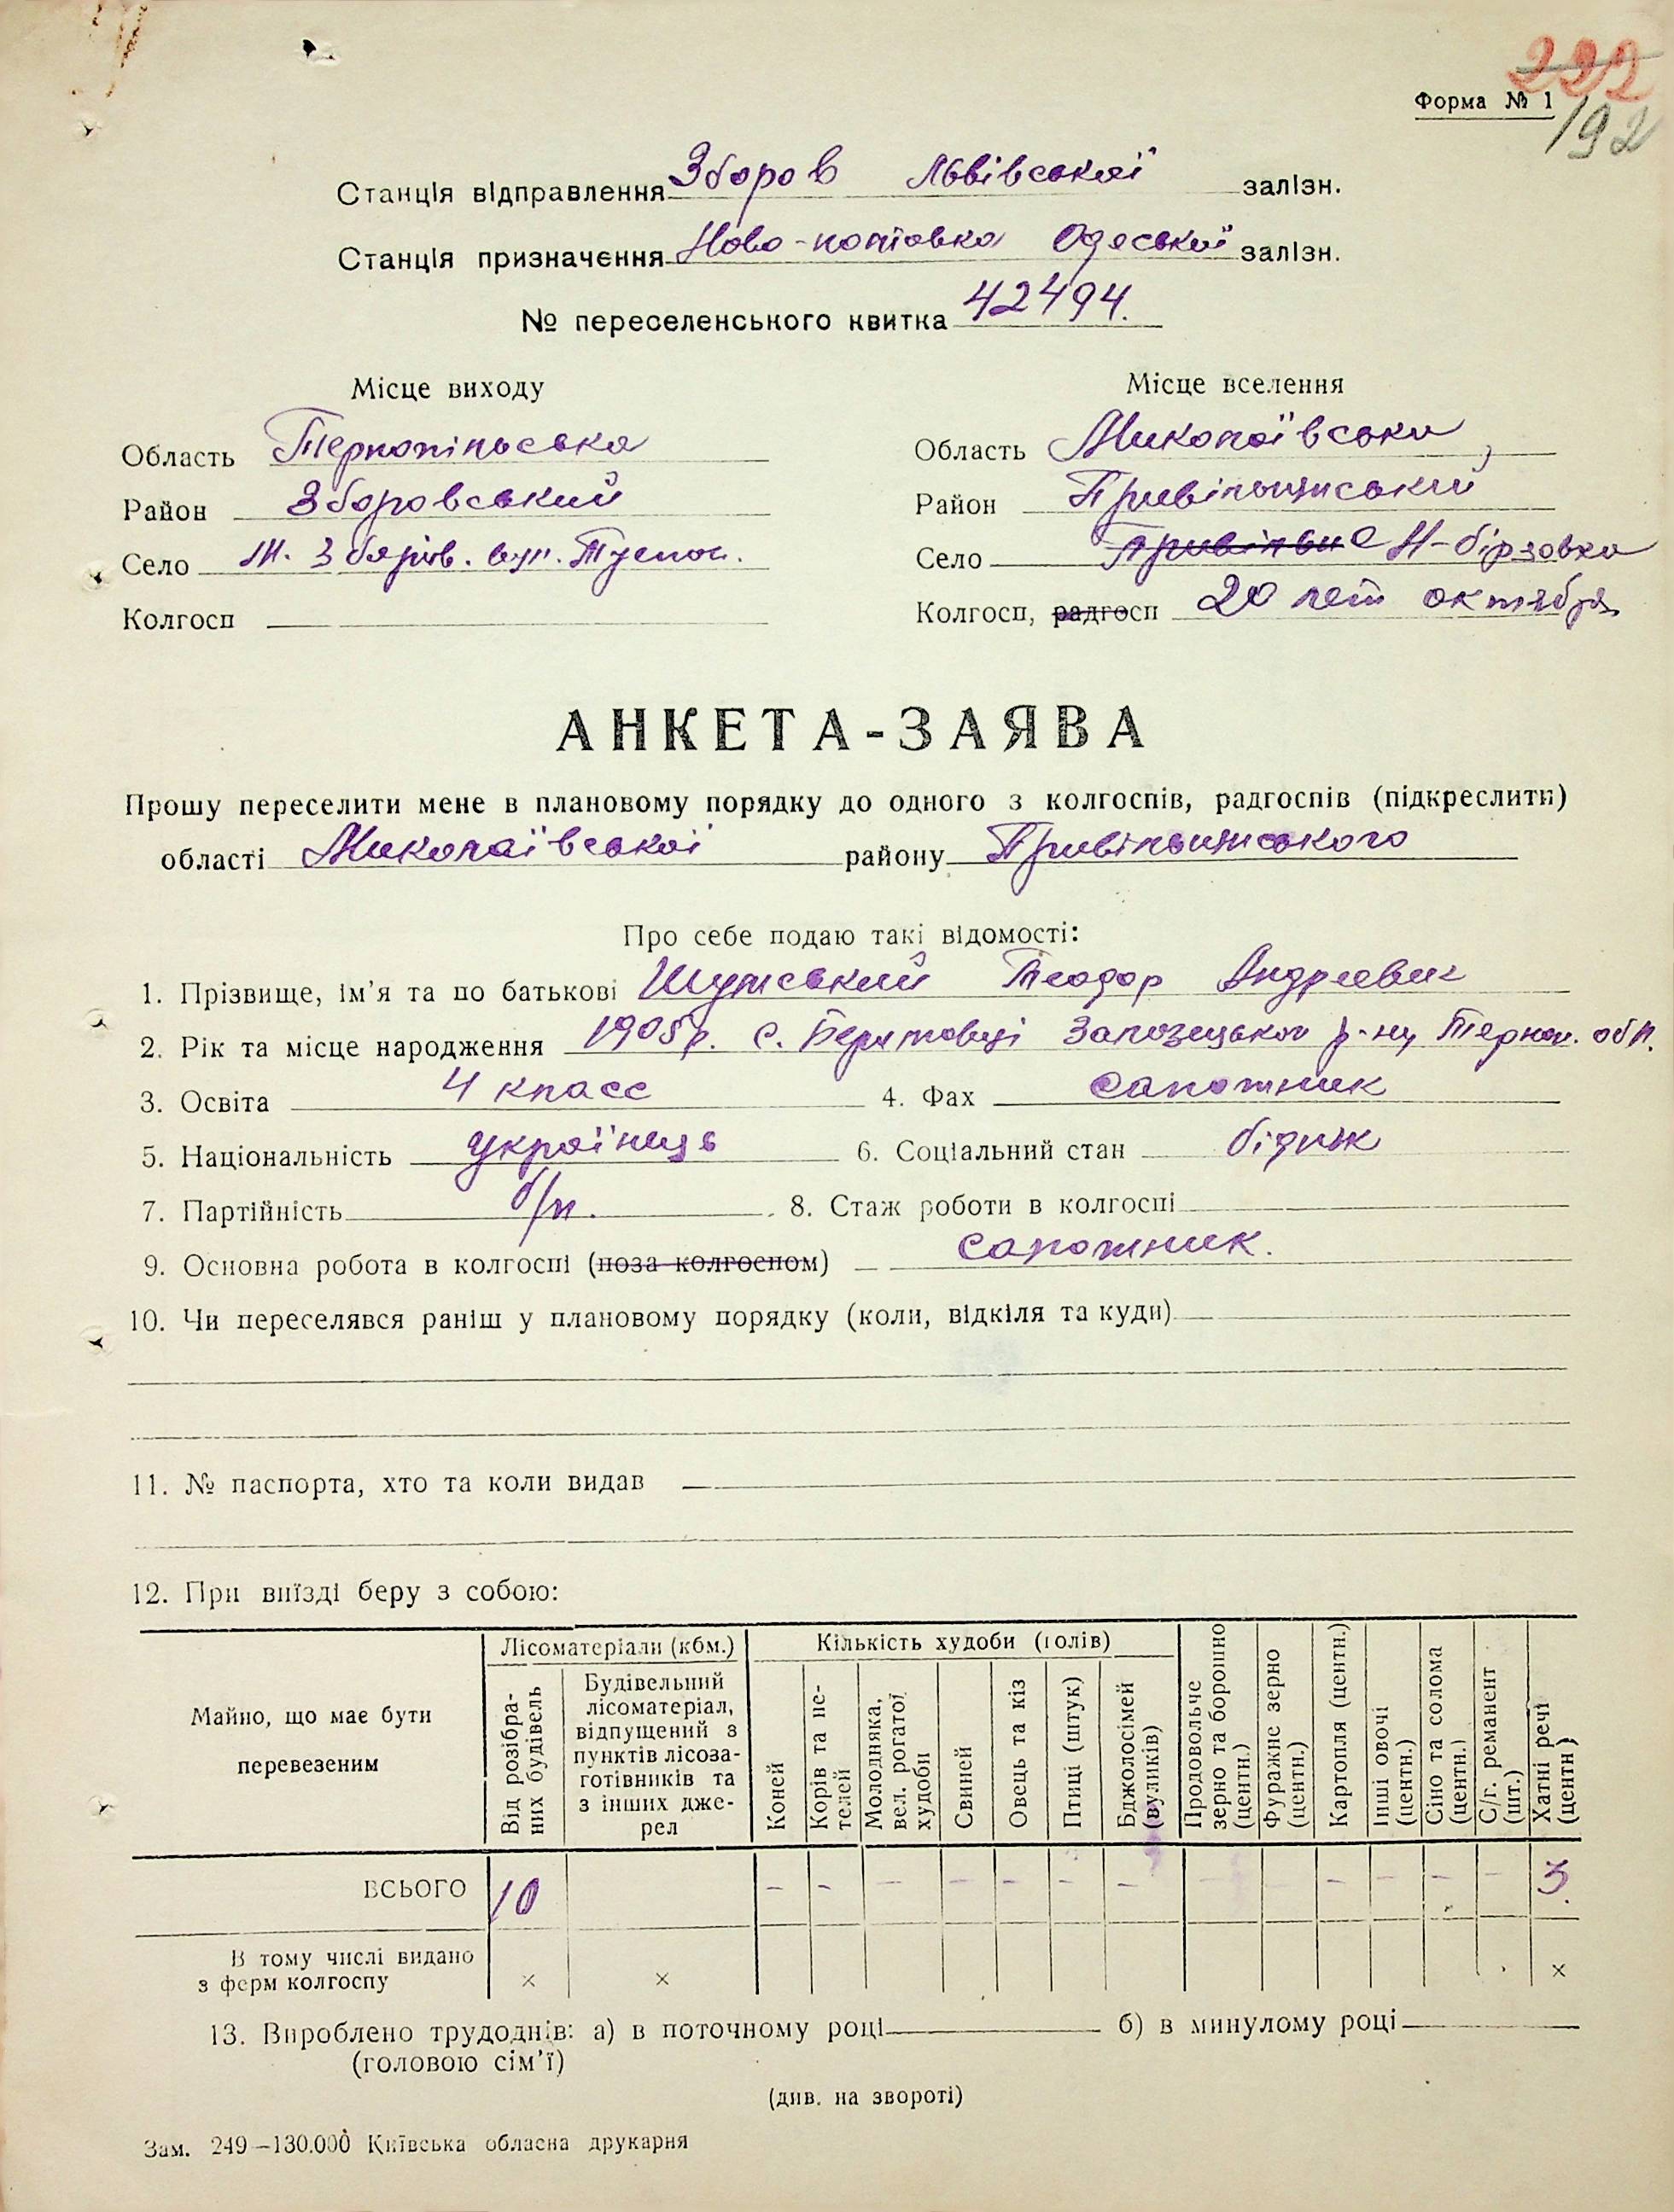 222
Форма № 1
192
Станція відправлення Зборов Львівської залізн.
Станція призначення Ново-полтавка Одеської залізн.
№ переселенського квитка 42494.
Місце виходу
Місце вселення
Область Тернопільська
Область Миколаївська,
Район Зборовський
Район Привільнянський
Село М. Зборів. вул. Тупа
Село Привільне Н-бірзовка
Колгосп
Колгосп, радгосп 20 лет октября
АНКЕТА-ЗАЯВА
Прошу переселити мене в плановому порядку до одного з колгоспів, радгоспів (підкреслити)
області Миколаївської району Привільнянського
Про себе подаю такі відомості:
1. Прізвище, ім'я та по батькові Шумський Теодор Андреевич
2. Рік та місце народження 1905р. с. Залозецького р-ну Терноп. обл.
3. Освіта 4 класс 4. Фах сапожник
5. Національність українець 6. Соціальний стан бідняк
7. Партійність б/п. 8. Стаж роботи в колгоспі
9. Основна робота в колгоспі (поза колгоспом) сапожник.
10. Чи переселявся раніш у плановому порядку (коли, відкіля та куди)
11. № паспорта, хто та коли видав
12. При виїзді беру з собою:
Майно, що має бути перевезеним
Лісоматеріали (кбм.)
Від розібраних будівель
Будівельний лісоматеріал, відпущений з пунктів лісозаготівників та з інших джерел
Кількість худоби (голів)
Коней
Корів та нетелей
Молодняка, вел. рогатої худоби
Свиней
Овець та кіз
Птиці (штук)
Бджолосімей (вуликів)
Продовольче зерно та борошно (центн.)
Фуражне зерно (центн.)
Картопля (центн.)
Інші овочі (центн.)
Сіно та солома (центн.)
С/г. реманент (шт.)
Хатні речі (центн)
ВСЬОГО 10 - - - - - - - - - - - 3.
В тому числі видано
з ферм колгоспу × × ×
13. Вироблено трудоднів: а) в поточному році б) в минулому році
(головою сім'ї)
(див. на звороті)
Зам. 249—130.000 Київська обласна друкарня